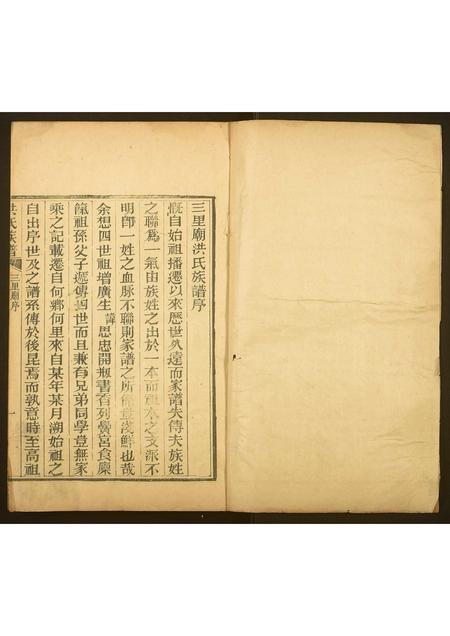 三里廟洪氏族譜序
慨自始祖播遷以來歷世久遠而家譜失傳夫族姓
之聯為一氣由族姓之出於一本而祖本之支派不
明卽一姓之血脉不聯則家譜之所係豈淺鮮也哉
余想四世祖增廣生諱思忠開瓶書香列黌宮食廩
餼祖孫父子遞傳四世而且兼有兄弟同學豈無家
乘之記載遷自何鄉何里來自某年某月溯始祖之
自出序世及之譜系傳於後昆焉而孰意時至高祖
洪氏族譜 三里廟序 一